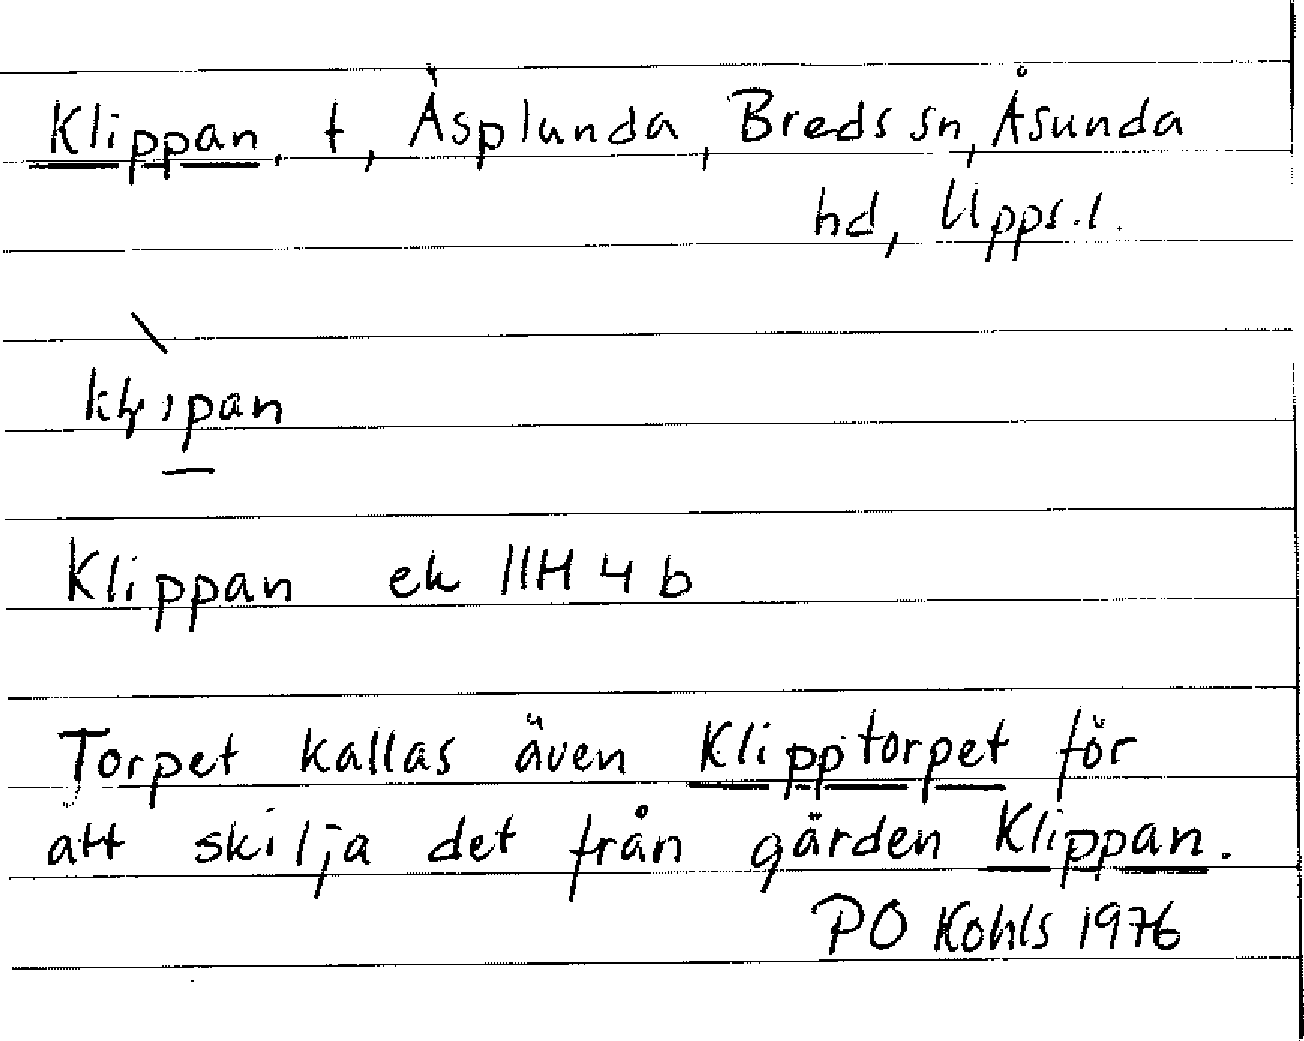 Klippan, t, Åsplunda, Breds sn, Åsunda
hd, Upps. l.
Klippan ek 11H 4 b
Torpet kallas även Klipptorpet för
att skilja det från gården Klippan.
PO Kohls 1976